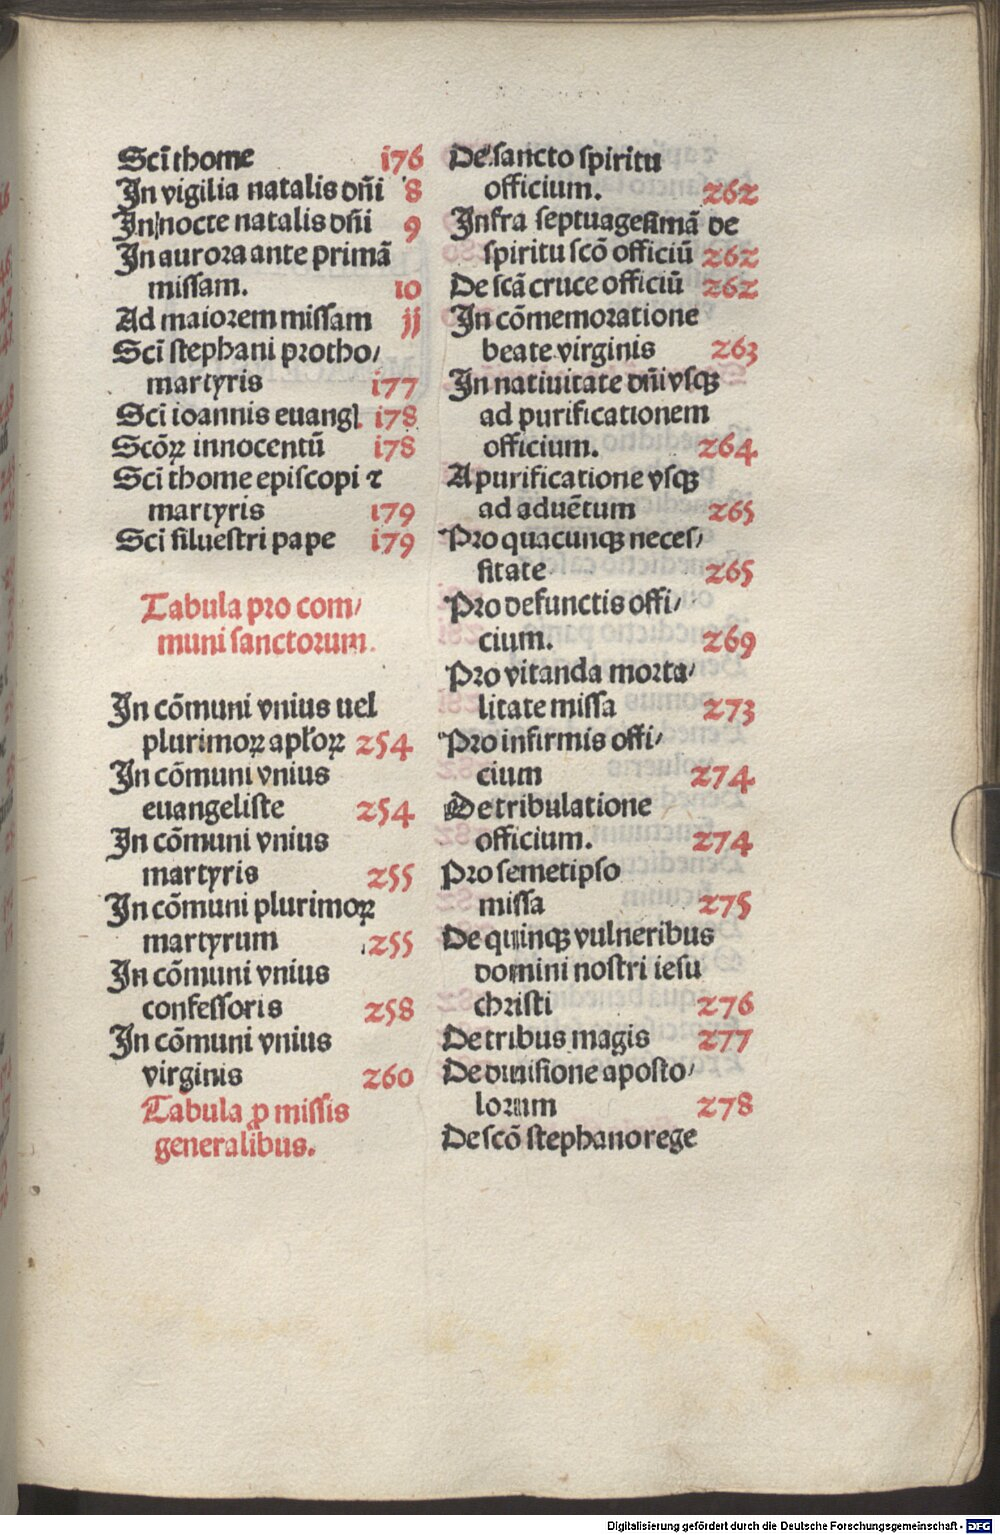 Scı̄ thome 176
In vigilia natalis dn̄i 8
In nocte natalis dn̄i 9
In aurora ante primā
missam. 10
Ad maiorem missam jj
Scı̄ stephani protho/
martyris 177
Scı̄ ioannis euangl. 178
Scōꝝ innocentū 178
Scı̄ thome episcopi ⁊
martyris 179
Scı̄ siluestri pape 179
Tabula pro com/
muni sanctorum.
In cōmuni vnius uel
plurimoꝝ apl'oꝝ 254
In cōmuni vnius
euangeliste 254
In cōmuni vnius
martyris 255
In cōmuni plurimoꝝ
martyrum 255
In cōmuni vnius
confessoris 258
In cōmuni vnius
virginis 260
Tabula ꝓ missis
generalibus.
De sancto spiritu
officium. 262
Infra septuagesimā de
spiritu scō officiū 262
De scā cruce officiū 262
In cōmemoratione
beate virginis 263
In natiuitate dn̄i vsqꝫ
ad purificationem
officium. 264
A purificatione vsqꝫ
ad aduētum 265
Pro quacunqꝫ neces/
sitate 265
Pro defunctis offi/
cium. 269
Pro vitanda morta/
litate missa 273
Pro infirmis offi/
cium 274
De tribulatione
officium. 274
Pro semetipso
missa 275
De quinqꝫ vulneribus
domini nostri iesu
christi 276
De tribus magis 277
De diuisione aposto/
lorum 278
De scō stephano rege
Digitalisierung gefördert durch die Deutsche Forschungsgemeinschaft - DFG